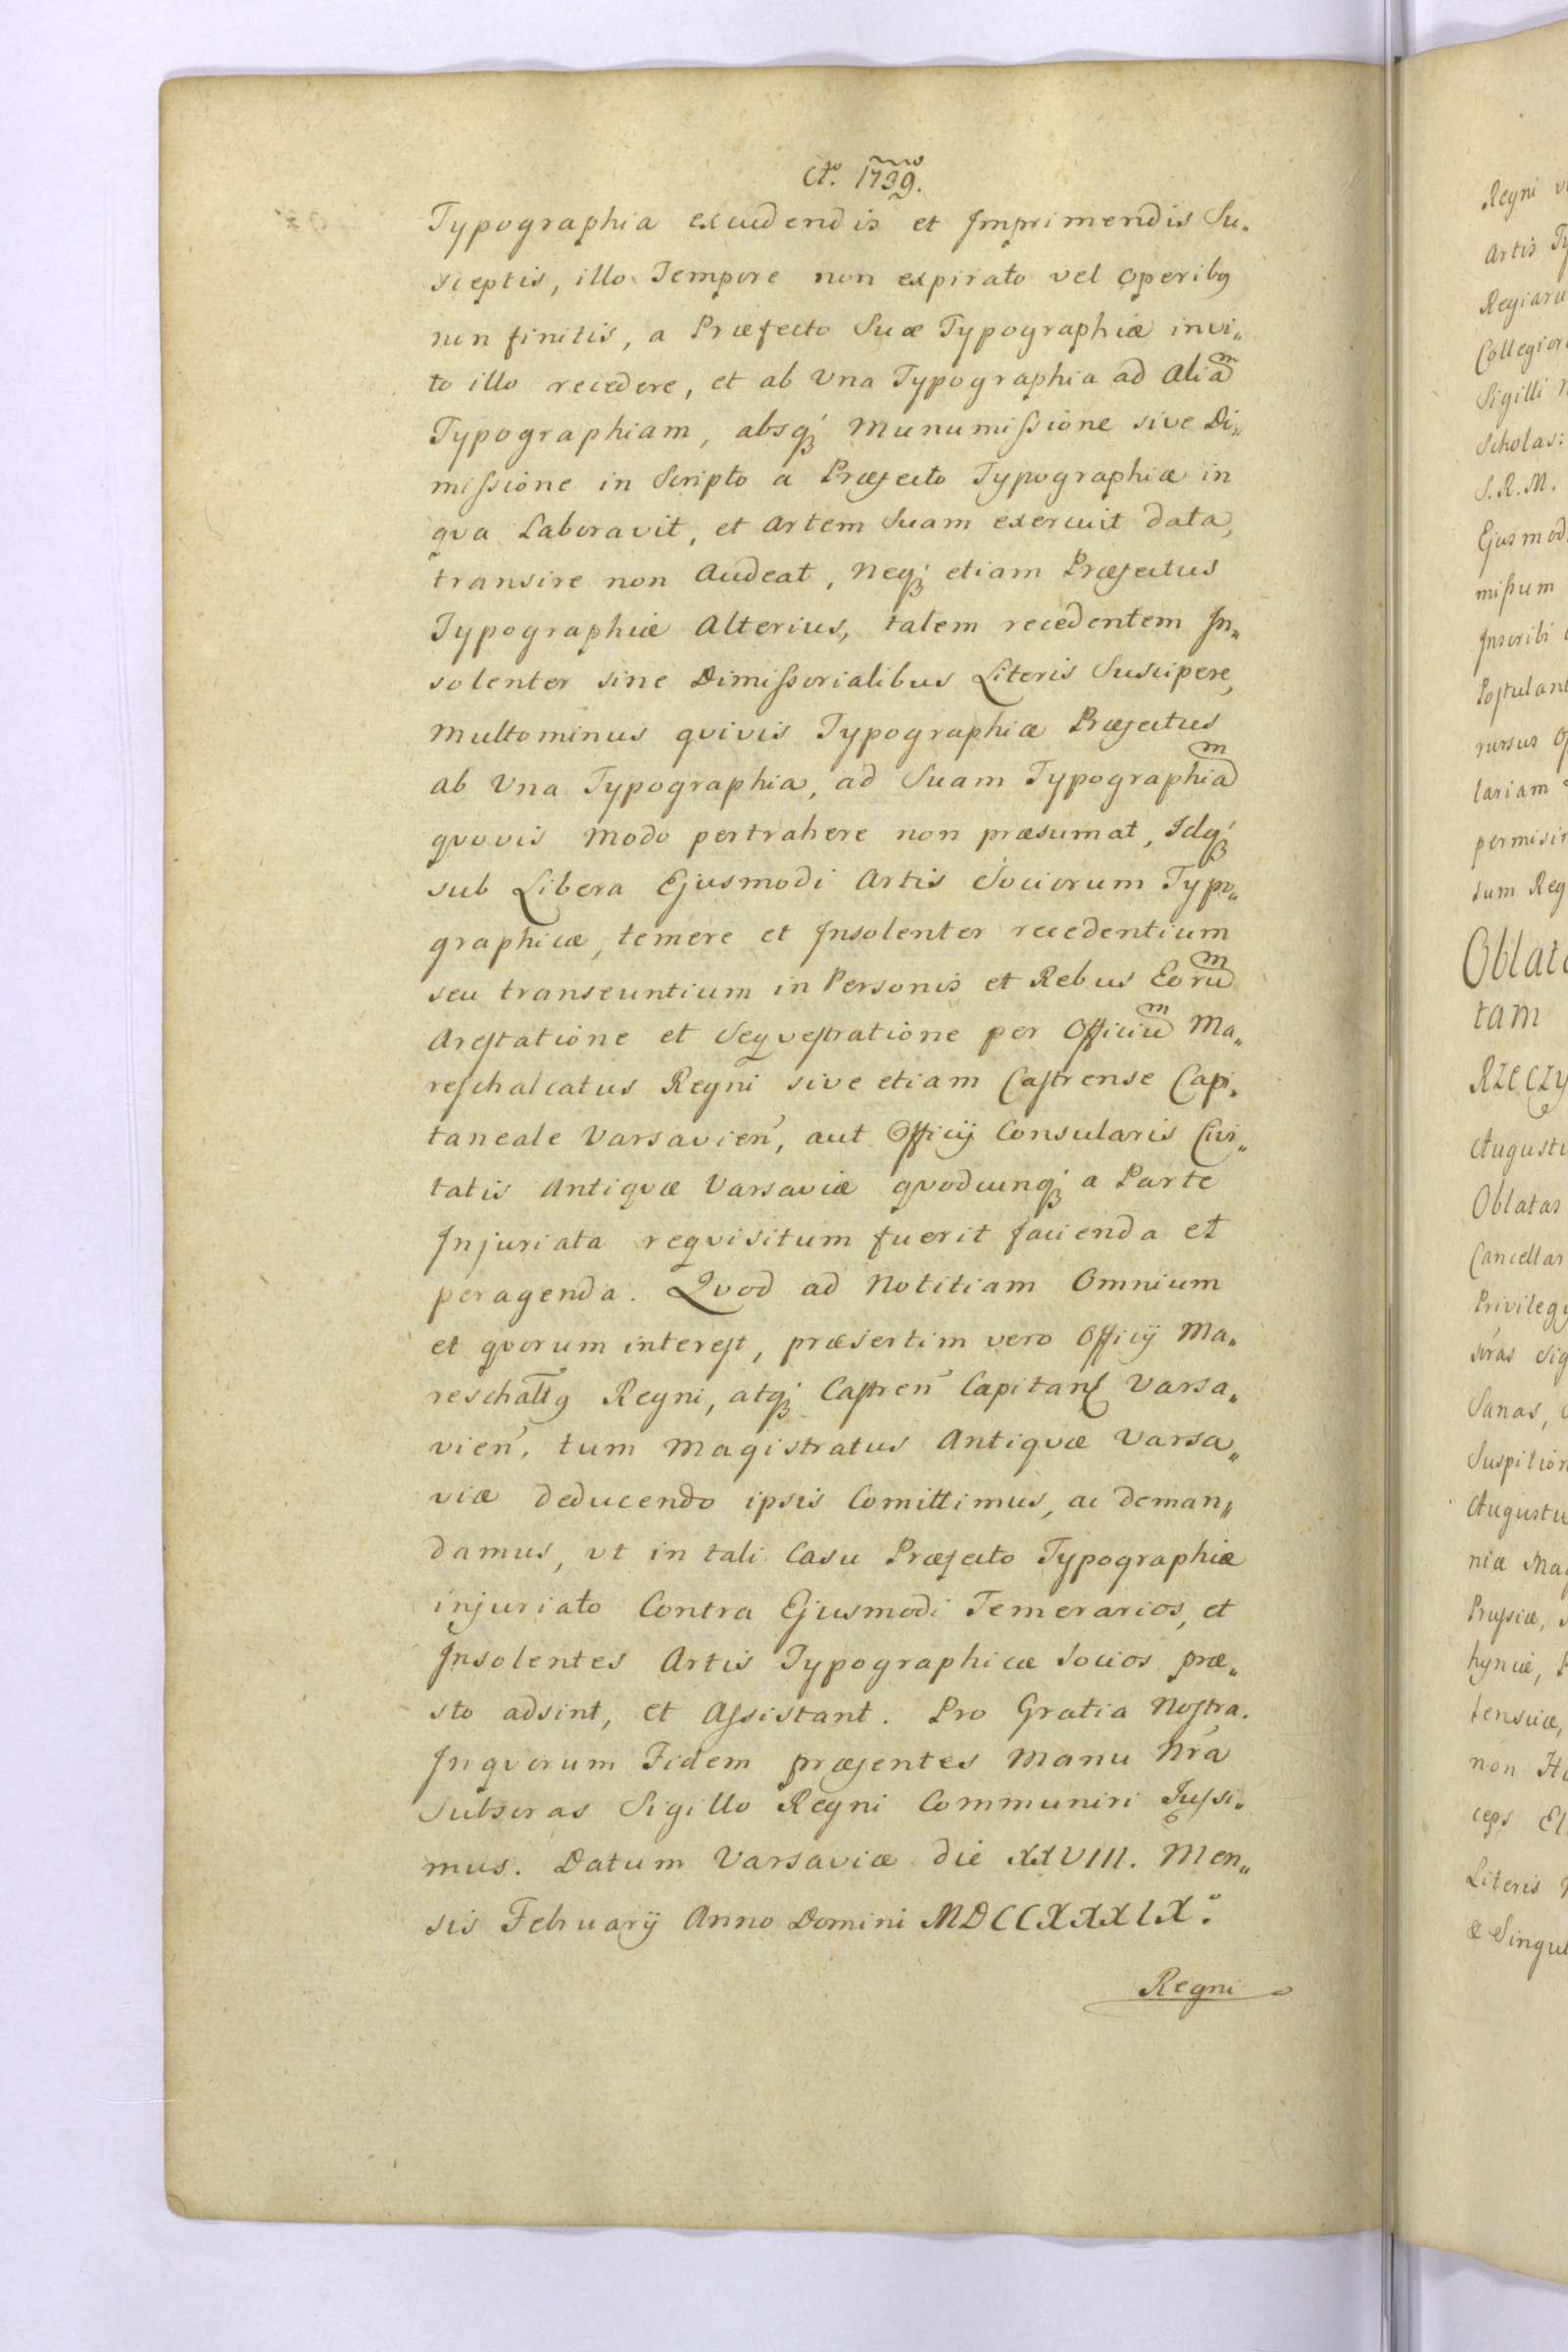 Aº. 1739.
Typographia excudendis et Imprimendis Su„
sceptis, illo Tempore non expirato vel operibꝯ
non finitis, a Præfecto Suæ Typographiæ invi„
to illo recedere, et ab Una Typographia ad Aliam̃
Typographiam, absqꝫ Munumissione sive Di„
missione in Scripto a Præfecto Typographiæ in
qva Laboravit, et Artem Suam exercuit data,
transire non Audeat, Neqꝫ etiam Præfectus
Typographiæ Alterius, talem recedentem In„
solenter sine Dimissorialibus Literis Suscipere,
Multominus qvivis Typographiæ Præfectus
ab Una Typographia, ad Suam Typographiam
qvovis Modo pertrahere non præsumat, Idqꝫ
sub Libera Ejusmodi Artis Sociorum Typo„
graphicæ, temere et Insolenter recedentium
seu transeuntium in Personis et Rebus Eorum
Arestatione et Seqvestratione per Officium Ma„
reschalcatus Regni sive etiam Castrense Capi„
taneale Varsavien̕, aut Officij Consularis Civi„
tatis Antiqvæ Varsaviæ qvodcunqꝫ a Parte
Injuriata reqvisitum fuerit facienda et
peragenda. Qvod ad Notitiam Omnium
et qvorum interest, præsertim vero Officij Ma„
reschaltꝯ Regni, atqꝫ Castren̕ Capitan̕ Varsa„
vien̕, tum Magistratus Antiqvæ Varsa„
viæ deducendo ipsis Comittimus, ac deman„
damus, ut in tali Casu Præfecto Typographiæ
injuriato Contra Ejusmodi Temerarios, et
Insolentes Artis Typographicæ Socios præ„
sto adsint, et Assistant. Pro Gratia Nostra.
Inqvorum Fidem præsentes Manu Nrã
Subscras Sigillo Regni Communiri Jussi„
mus. Datum Varsaviæ die XXVIII. Men„
sis February Anno Domini MDCCXXXIXº.
Regni
Regni
Artis
Regiaru
Collegior
Sigilli
Scholas:
S.R.M.
Ejusmod
missum
Inscribi
Postulant
rursus
lariam
permisi
tum Reg
Oblat
tam
Rzeczy
Augusti
Oblatas
Cancellar
Privilegy
Sanas,
Suspition
Augustu
niæ Mag
Prussiæ,
hyniæ,
tensiæ,
non
ceps El
Literis
& Singul